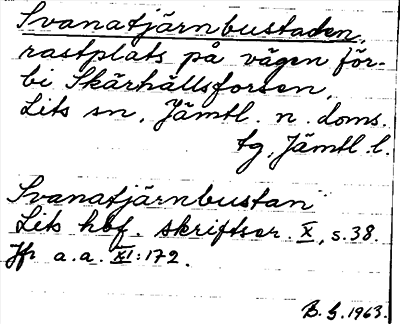 Svanatjärnbustaden,
rastplats på vägen för-
bi Skärhällsforsen,
Lits sn, Jämtl. n. doms.
tg, Jämtl. l.
Svanatjärnbustan
Lits hbf. skriftser. X, s. 38.
Jfr a.a. XI:172.
B. G. 1963.